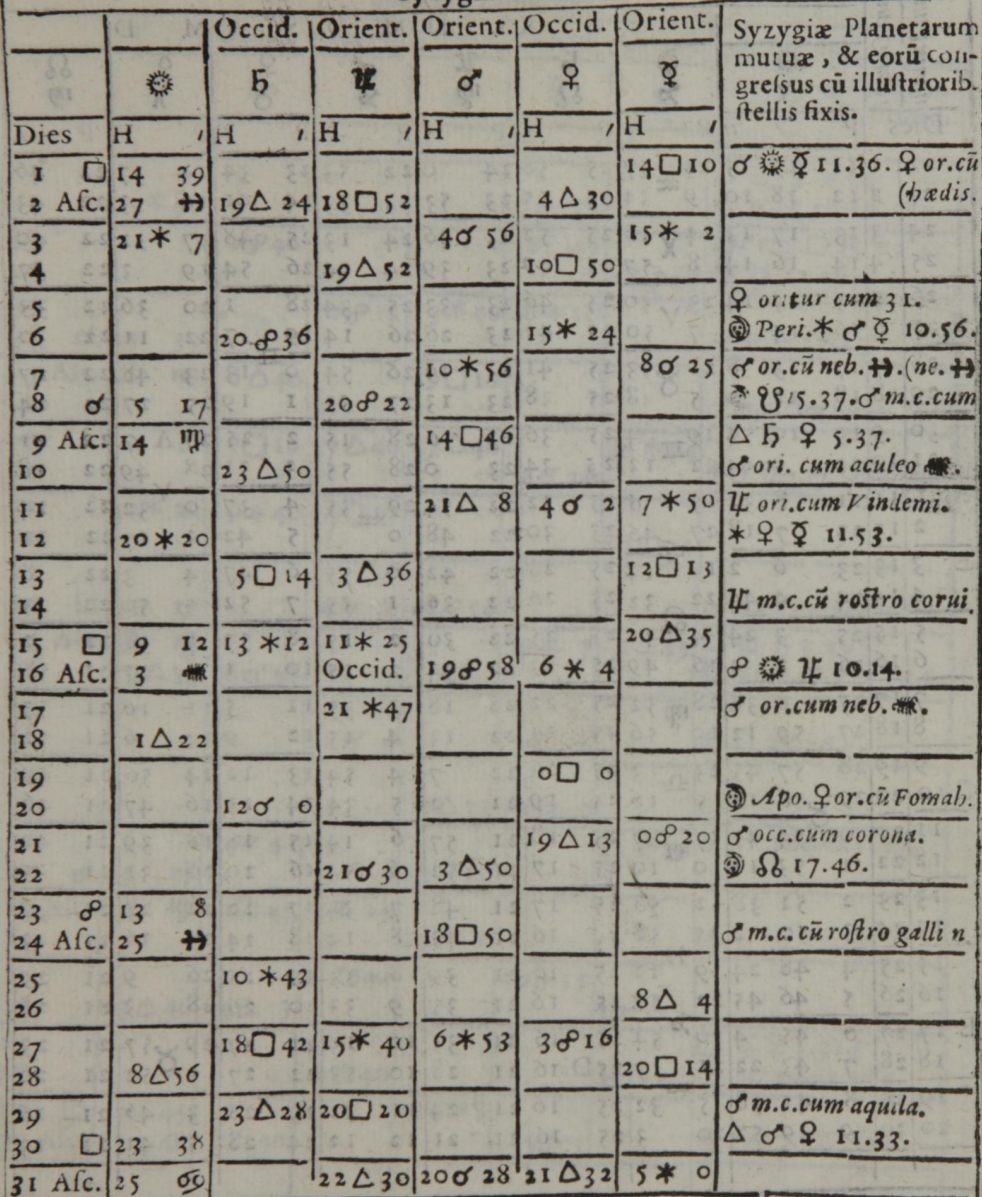 Occid. Orient. Orient. Occid. Orient. Syzygiæ Planetarum
mutuæ, & eorū con-
greſsus cū illuſtriorib.
ſtellis fixis.
☼ ♄ ♃ ♂ ♀ ☿
Dies H ′ H ′ H ′ H ′ H ′ H ′
1 □ 14 39 14□10 ☌ ☼ ☿ 11.36. ♀ or.cū
2 Aſc. 27 ♓ 19△24 18□52 4△30 (hædis.
3 21✶7 4☌56 15✶2
4 19△52 10□50
5 ♀ oritur cum 31.
6 20☍36 15✶24 Peri.✶ ♂ ☿ 10.56.
7 10✶56 8☌25 ♂ or.cū neb. ♓.(ne. ♓
8 ☌ 5 17 20☍22 ☋ 5.37.♂ m.c.cum
9 Aſc. 14 ♍ 14□46 △ ♄ ♀ 5.37.
10 23△50 ♂ ori. cum aculeo ♏.
11 21△8 4☌2 7✶50 ♃ ori.cum Vindemi.
12 20✶20 ✶ ♀ ☿ 11.53.
13 5□14 3△36 12□13
14 ♃ m.c.cū roſtro corui
15 □ 9 12 13✶12 11✶25 20△35
16 Aſc. 3 ♏ Occid. 19☍58 6✶4 ☍ ☼ ♃ 10.14.
17 21✶47 ♂ or.cum neb. ♏.
18 1△22
19 0□0
20 12☌0 Apo. ♀ or.cū Fomah.
21 19△13 0☍20 ♂ occ.cum corona.
22 21☌30 3△50 ☊ 17.46.
23 ☍ 13 8
24 Aſc. 25 ♓ 18□50 ♂ m.c. cū roſtro galli n
25 10✶43
26 8△4
27 18□42 15✶40 6✶53 3☍16
28 8△56 20□14
29 23△28 20□20 ♂ m.c.cum aquila.
30 □ 23 38 △ ♂ ♀ 11.33.
31 Aſc. 25 ♋ 22△30 20☌28 21△32 5✶0